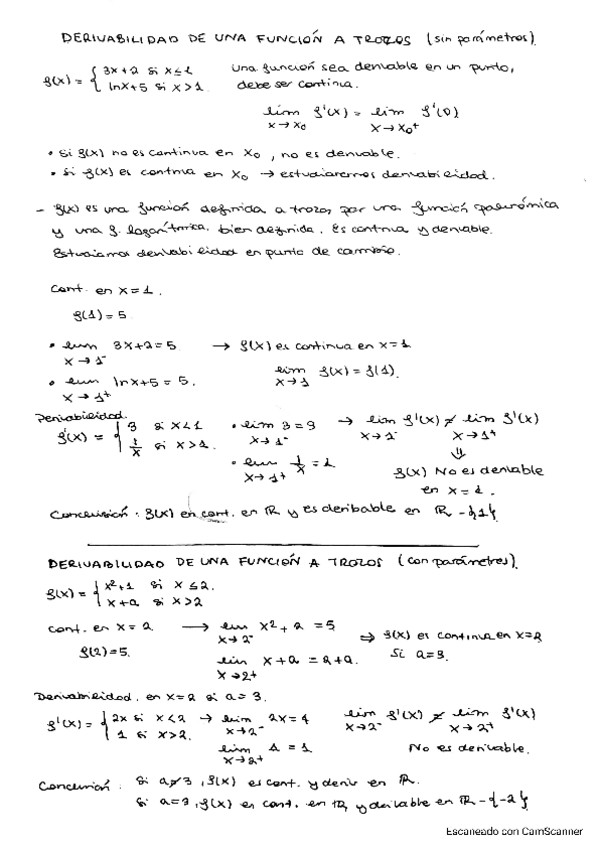 DERIVABILIDAD DE UNA FUNCIÓN A TROZOS (sin parámetros)
f(x) = { 3x+2 si x≤1 una función sea derivable en un punto,
lnx+5 si x>1 debe ser continua.
lim f'(x) = lim f'(0)
x→x₀ x→x₀⁺
• Si f(x) no es continua en x₀, no es derivable.
• Si f(x) es continua en x₀ → estudiaremos derivabilidad.
- f(x) es una función definida a trozos, por una función polinómica
y una f. logarítmica. bien definida. Es continua y derivable.
Estudiamos derivabilidad en punto de cambio.
Cont. en x=1.
f(1)=5
• lim 3x+2=5 → f(x) es continua en x=1
x→1⁻ lim f(x)=f(1).
• lim lnx+5=5. x→1
x→1⁺
Derivabilidad.
f'(x) = { 3 si x<1 • lim 3=3 → lim f'(x) ≠ lim f'(x)
1/x si x>1. x→1⁻ x→1⁻ x→1⁺
• lim 1/x = 1 ⇓
x→1⁺ f(x) No es derivable
en x=1.
Conclusión: f(x) en cont. en ℝ y es deribable en ℝ-{1}.
DERIVABILIDAD DE UNA FUNCIÓN A TROZOS (con parámetros).
f(x) = { x²+1 si x≤2.
x+a si x>2
cont. en x=2 → lim x²+2=5
f(2)=5. x→2⁻ ⇒ f(x) es continua en x=2
lim x+a=2+a. Si a=3.
x→2⁺
Derivabilidad. en x=2 si a=3.
f'(x) = { 2x si x<2 → lim 2x=4 lim f'(x) ≠ lim f'(x)
1 si x>2. x→2⁻ x→2⁻ x→2⁺
lim 1=1 No es derivable.
x→2⁺
Conclusión: Si a≠3, f(x) es cont. y deriv en ℝ.
Si a=3, f(x) es cont. en ℝ, y derivable en ℝ-{-2}.
Escaneado con CamScanner